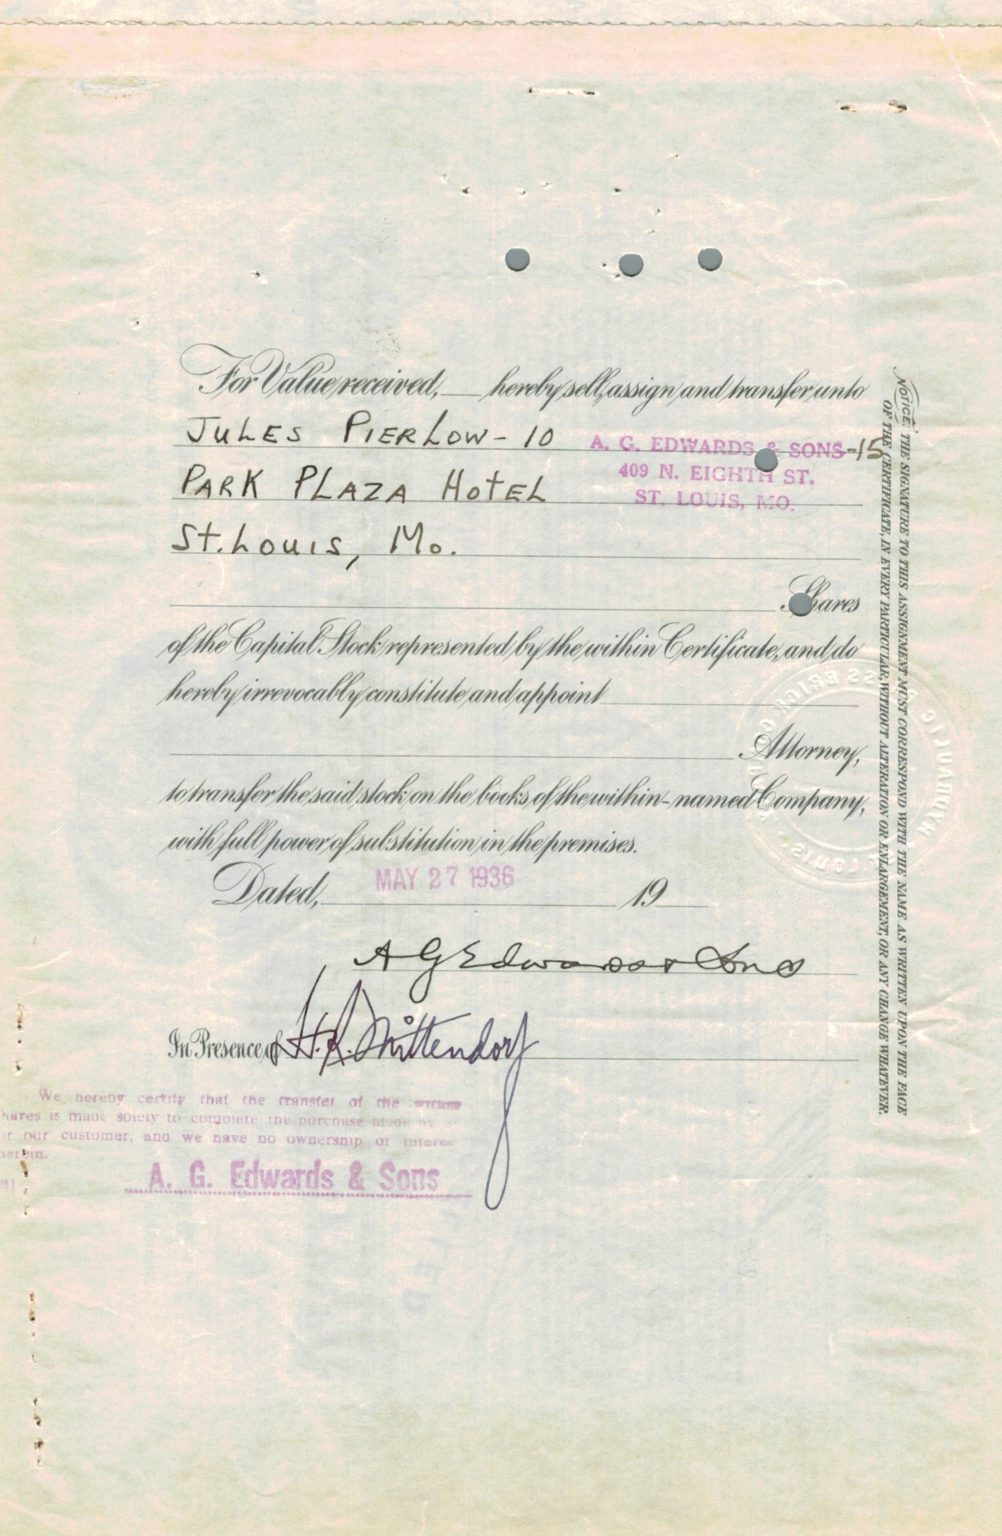 For Value received, hereby sell, assign and transfer unto
JULES PIERLOW-10
A. G. EDWARDS & SONS-15
409 N. EIGHTH ST.
ST. LOUIS, MO.
PARK PLAZA HOTEL
St. Louis, Mo.
Shares
of the Capital Stock represented by the within Certificate, and do
hereby irrevocably constitute and appoint
Attorney,
to transfer the said stock on the books of the within-named Company,
with full power of substitution in the premises.
Dated, MAY 27 1936 19
A G Edwards & Sons
In Presence of H. R. Mittendorf
We hereby certify that the transfer of the within
shares is made solely to complete the purchase made by
or our customer, and we have no ownership or interes
herein.
A. G. Edwards & Sons
NOTICE: THE SIGNATURE TO THIS ASSIGNMENT MUST CORRESPOND WITH THE NAME AS WRITTEN UPON THE FACE
OF THE CERTIFICATE, IN EVERY PARTICULAR, WITHOUT ALTERATION OR ENLARGEMENT, OR ANY CHANGE WHATEVER.
HYDRAULIC PRESS BRICK
ST. LOUIS